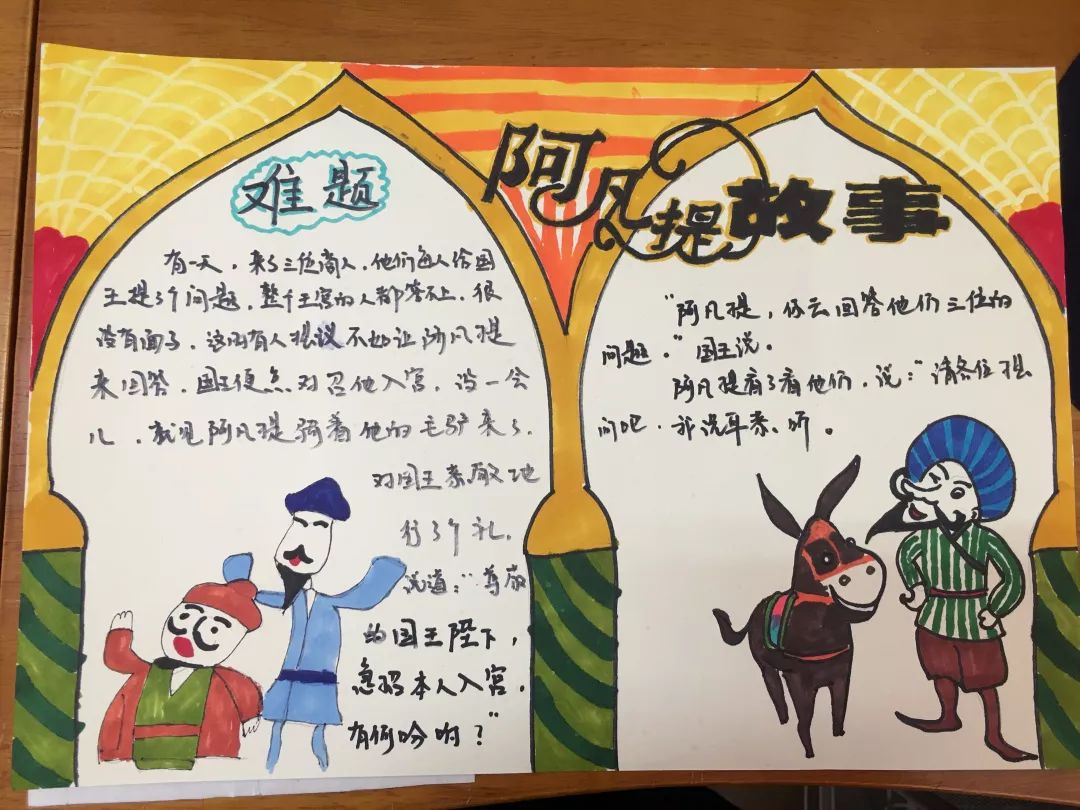 阿凡提故事
难题
有一天，来了三位商人，他们每人给国
王提了个问题，整个王宫的人都答不上，很
没有面子，这时有人提议不如让阿凡提
来回答，国王便点对召他入宫，没一会
儿，就见阿凡提骑着他的毛驴来了，
对国王恭敬地
行了个礼，
说道：“尊敬
的国王陛下，
急招本人入宫，
有何吩咐？”
“阿凡提，你去回答他们三位的
问题。”国王说。
阿凡提看了看他们，说：“请各位提
问吧，我洗耳恭听。